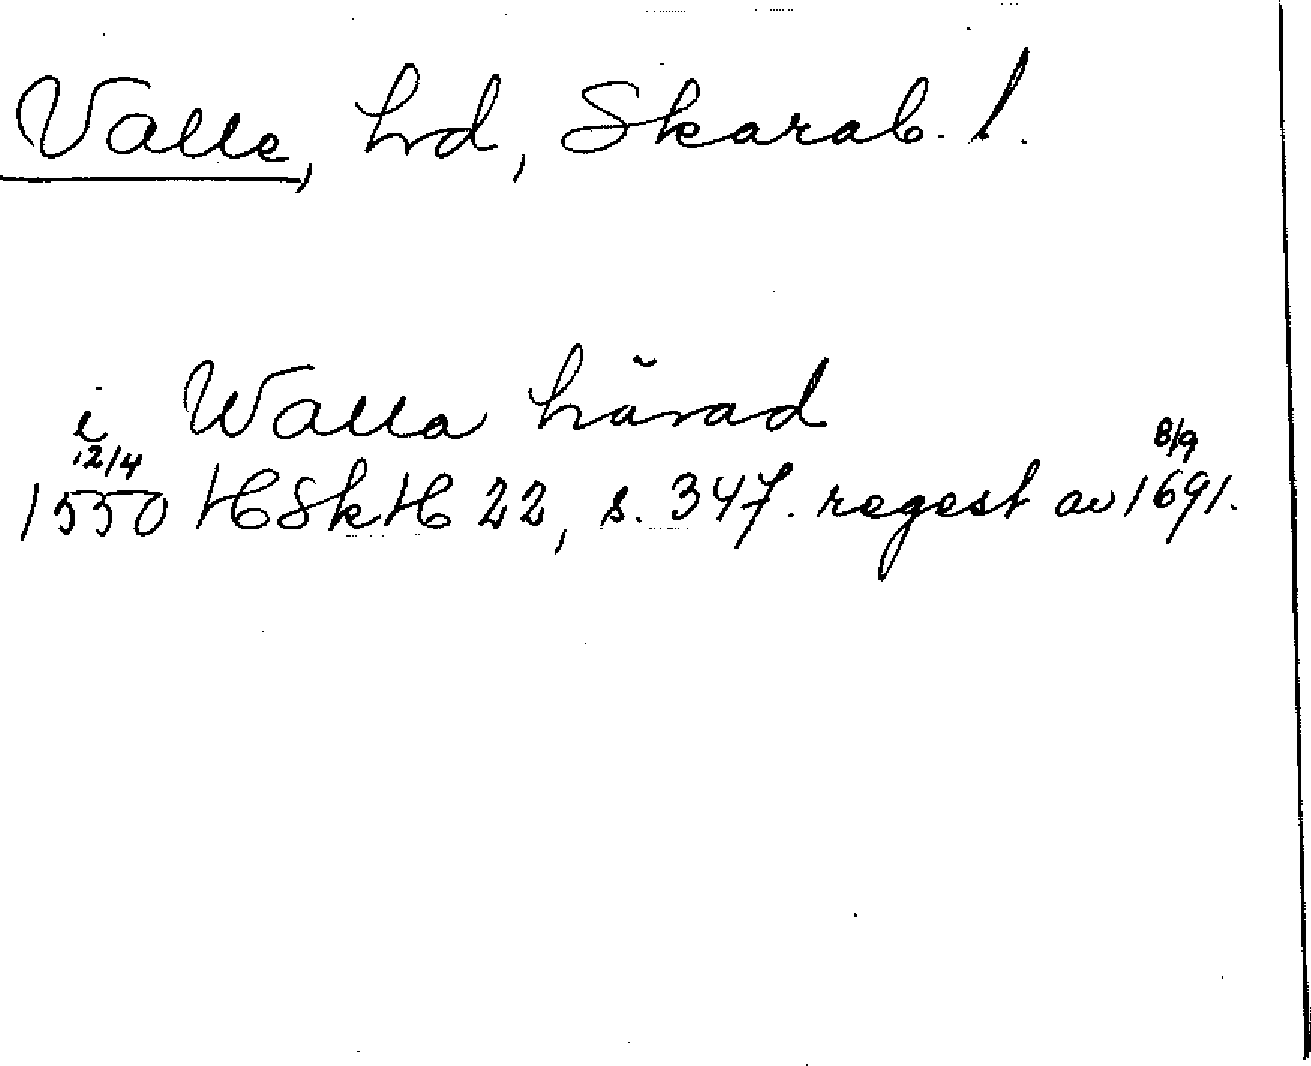 Valle, hd, Skarab. l.
i Walla härad
12/4 8/9
1550 HSkH 22, s. 347. regest av 1691.